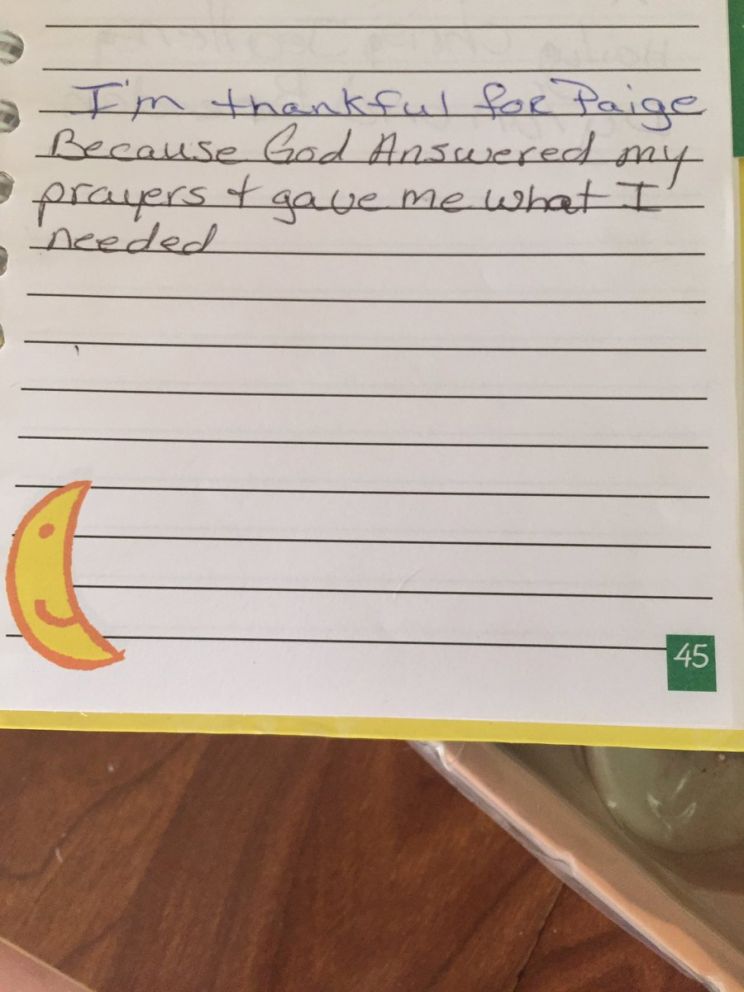 I'm thankful for Paige
Because God Answered my
prayers & gave me what I
needed
45